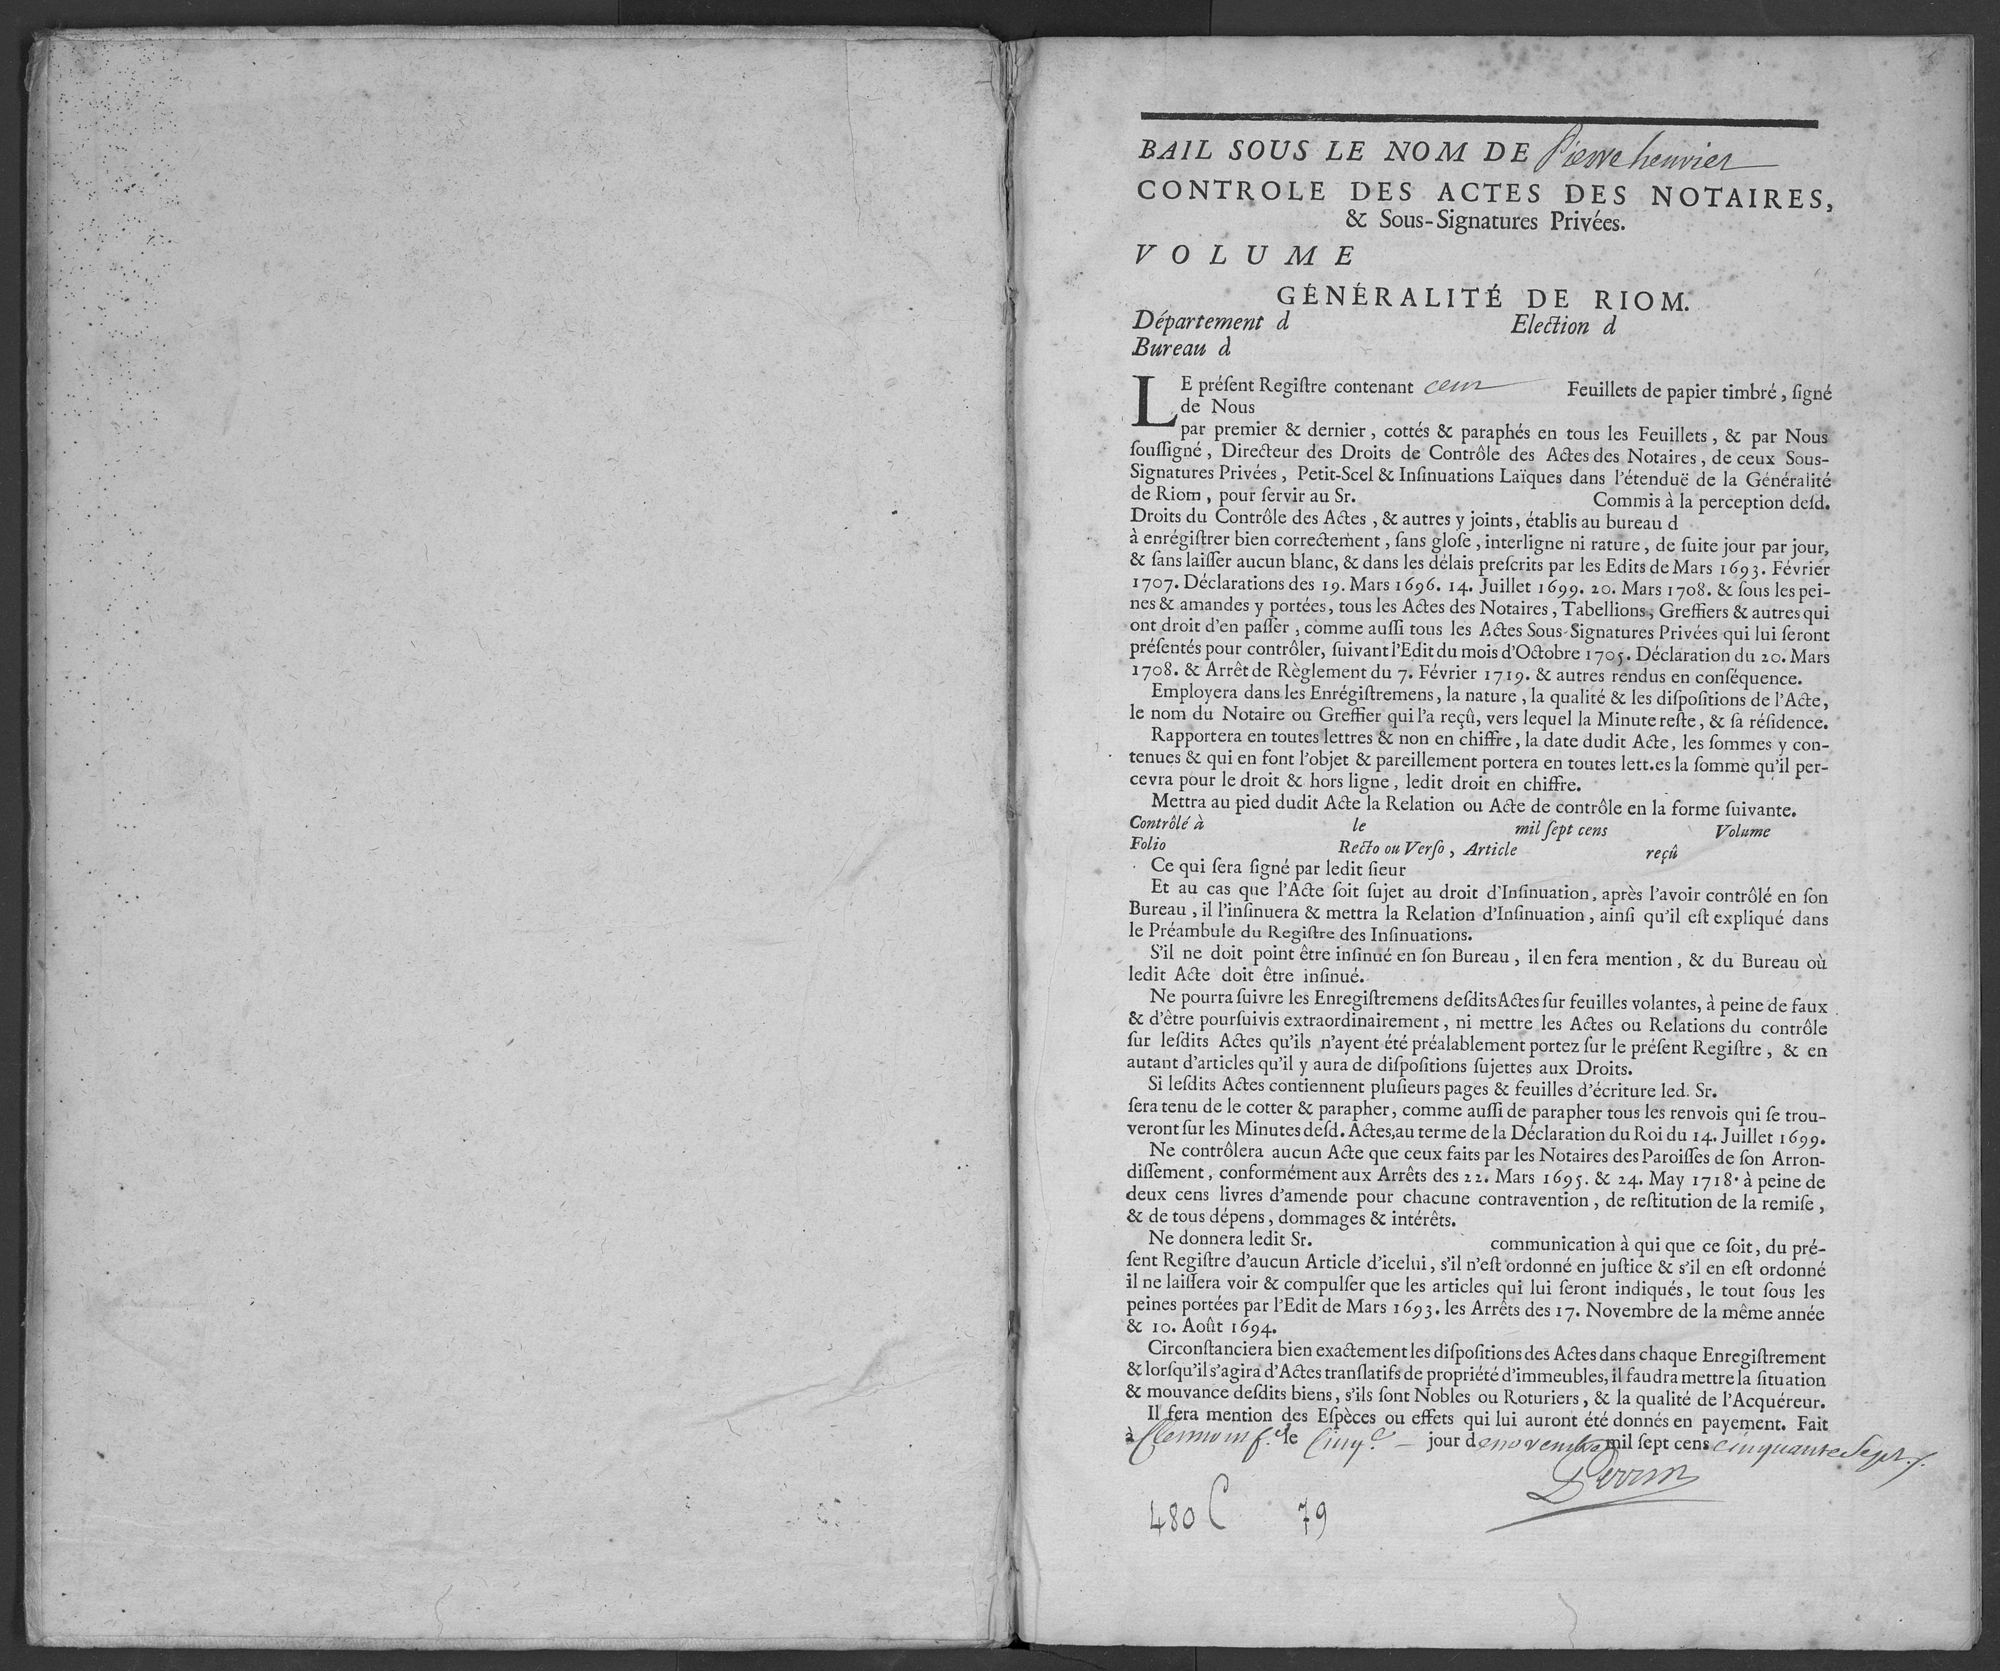 BAIL SOUS LE NOM DE Pierre henriet
CONTROLE DES ACTES DES NOTAIRES,
& Sous-Signatures Privées.
VOLUME
GÉNÉRALITÉ DE RIOM.
Département d Election d
Bureau d
LE préſent Regiſtre contenant cent Feuillets de papier timbré, ſigné
de Nous
par premier & dernier, cottés & paraphés en tous les Feuillets, & par Nous
ſouſſigné, Directeur des Droits de Contrôle des Actes des Notaires, de ceux Sous-
Signatures Privées, Petit-Scel & Inſinuations Laïques dans l'étenduë de la Généralité
de Riom, pour ſervir au Sr. Commis à la perception deſd.
Droits du Contrôle des Actes, & autres y joints, établis au bureau d
à enrégiſtrer bien correctement, ſans gloſe, interligne ni rature, de ſuite jour par jour,
& ſans laiſſer aucun blanc, & dans les délais preſcrits par les Edits de Mars 1693. Février
1707. Déclarations des 19. Mars 1696. 14. Juillet 1699. 20. Mars 1708. & ſous les pei-
nes & amandes y portées, tous les Actes des Notaires, Tabellions, Greffiers & autres qui
ont droit d'en paſſer, comme auſſi tous les Actes Sous-Signatures Privées qui lui ſeront
préſentés pour contrôler, ſuivant l'Edit du mois d'Octobre 1705. Déclaration du 20. Mars
1708. & Arrêt de Règlement du 7. Février 1719. & autres rendus en conſéquence.
Employera dans les Enrégiſtremens, la nature, la qualité & les diſpoſitions de l'Acte,
le nom du Notaire ou Greffier qui l'a reçû, vers lequel la Minute reſte, & ſa réſidence.
Rapportera en toutes lettres & non en chiffre, la date dudit Acte, les ſommes y con-
tenues & qui en font l'objet & pareillement portera en toutes lett.es la ſomme qu'il per-
cevra pour le droit & hors ligne, ledit droit en chiffre.
Mettra au pied dudit Acte la Relation ou Acte de contrôle en la forme ſuivante.
Contrôlé à le mil ſept cens Volume
Folio Recto ou Verſo, Article reçû
Ce qui ſera ſigné par ledit ſieur
Et au cas que l'Acte ſoit ſujet au droit d'Inſinuation, après l'avoir contrôlé en ſon
Bureau, il l'inſinuera & mettra la Relation d'Inſinuation, ainſi qu'il eſt expliqué dans
le Préambule du Regiſtre des Inſinuations.
S'il ne doit point être inſinué en ſon Bureau, il en fera mention, & du Bureau où
ledit Acte doit être inſinué.
Ne pourra ſuivre les Enregiſtremens deſdits Actes ſur feuilles volantes, à peine de faux
& d'être pourſuivis extraordinairement, ni mettre les Actes ou Relations du contrôle
ſur leſdits Actes qu'ils n'ayent été préalablement portez ſur le préſent Regiſtre, & en
autant d'articles qu'il y aura de diſpoſitions ſujettes aux Droits.
Si leſdits Actes contiennent pluſieurs pages & feuilles d'écriture led. Sr.
ſera tenu de le cotter & parapher, comme auſſi de parapher tous les renvois qui ſe trou-
veront ſur les Minutes deſd. Actes, au terme de la Déclaration du Roi du 14. Juillet 1699.
Ne contrôlera aucun Acte que ceux faits par les Notaires des Paroiſſes de ſon Arron-
diſſement, conformément aux Arrêts des 22. Mars 1695. & 24. May 1718. à peine de
deux cens livres d'amende pour chacune contravention, de reſtitution de la remiſe,
& de tous dépens, dommages & intérêts.
Ne donnera ledit Sr. communication à qui que ce ſoit, du pré-
ſent Regiſtre d'aucun Article d'icelui, s'il n'eſt ordonné en juſtice & s'il en eſt ordonné
il ne laiſſera voir & compulſer que les articles qui lui ſeront indiqués, le tout ſous les
peines portées par l'Edit de Mars 1693. les Arrêts des 17. Novembre de la même année
& 10. Août 1694.
Circonſtanciera bien exactement les diſpoſitions des Actes dans chaque Enregiſtrement
& lorſqu'il s'agira d'Actes tranſlatifs de propriété d'immeubles, il faudra mettre la ſituation
& mouvance deſdits biens, s'ils ſont Nobles ou Roturiers, & la qualité de l'Acquéreur.
Il fera mention des Eſpèces ou effets qui lui auront été donnés en payement. Fait
à Clermont f.d le Cinq.e jour de novembre mil ſept cens cinquante Sept./.
Perrin
480 C 79